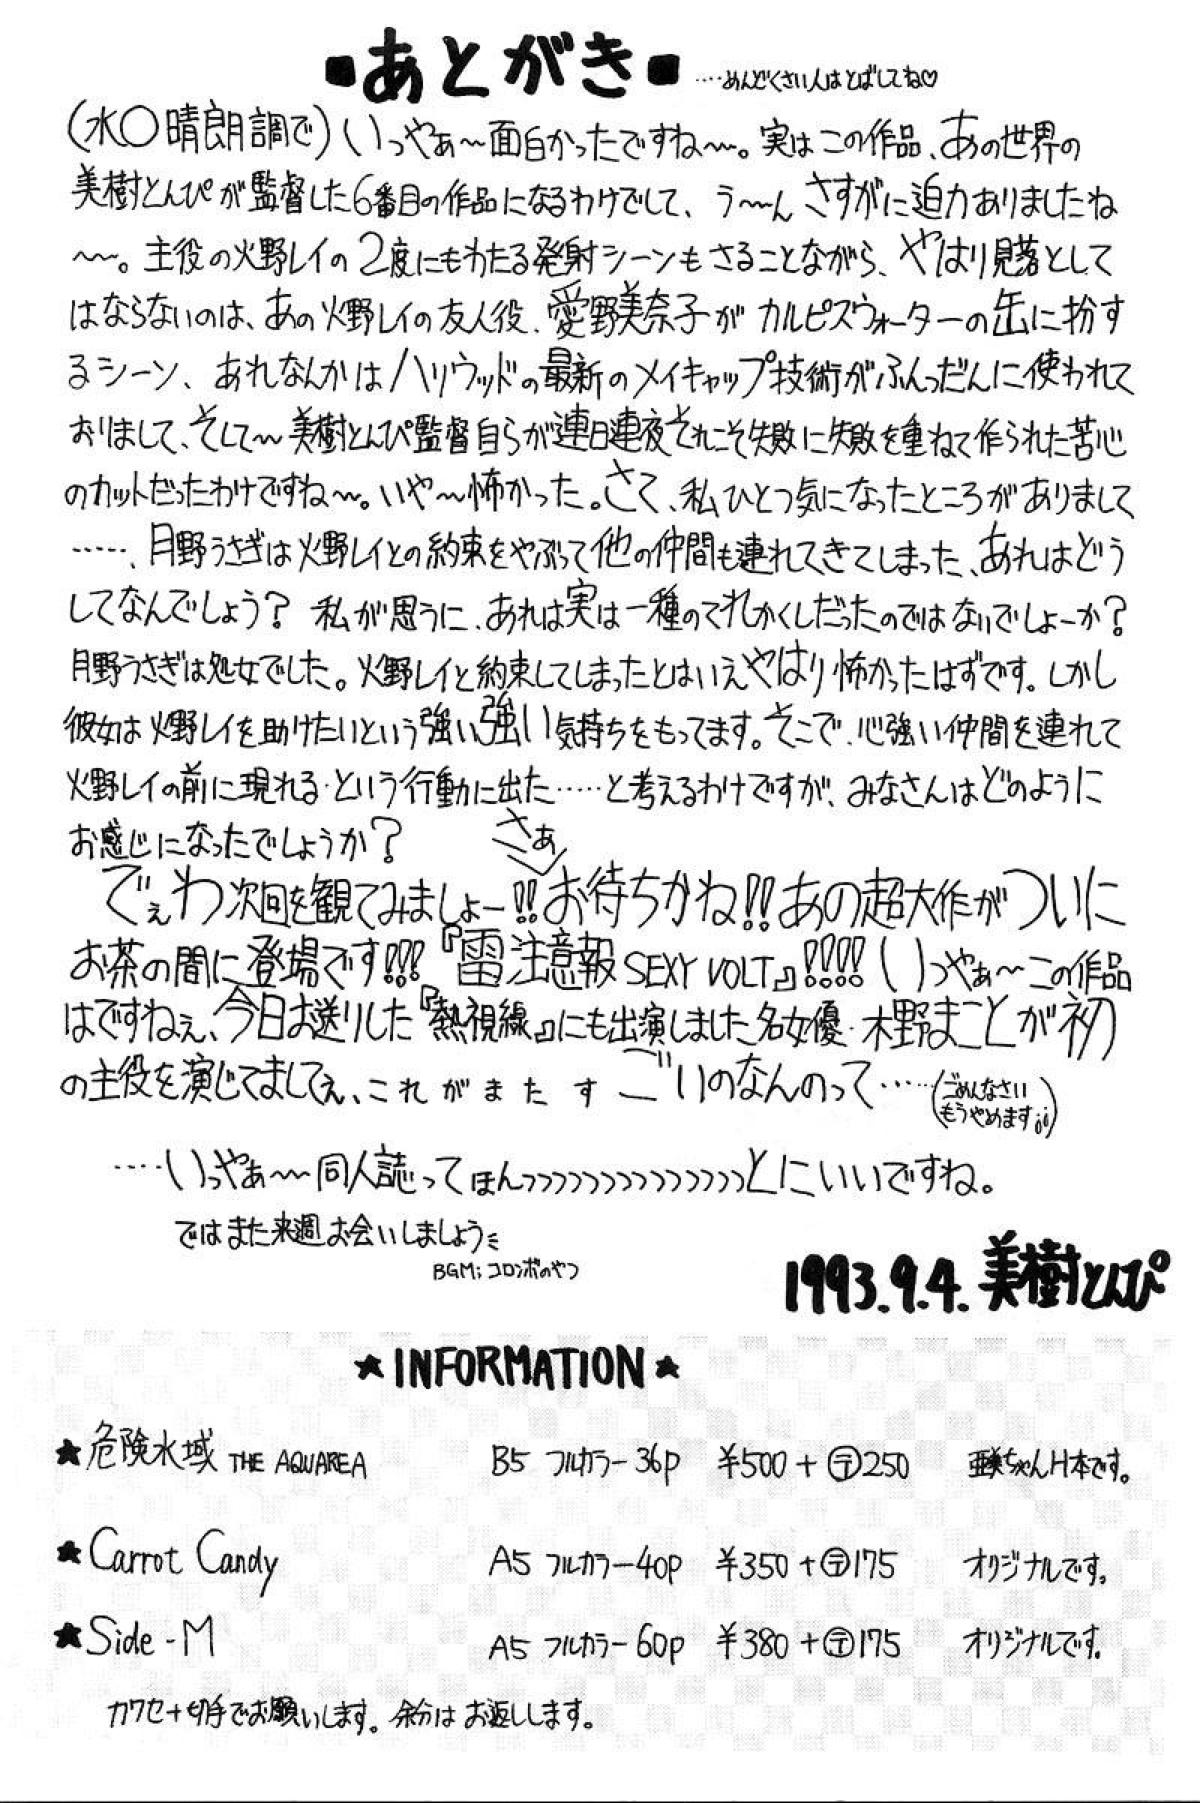 ■あとがき■ ‥‥めんどくさい人はとばしてね♡
(水〇晴朗調で)いっやぁ〜面白かったですね〜。実はこの作品、あの世界の
美樹とんぴが監督した6番目の作品になるわけでして、う〜〜ん さすがに迫力ありましたね
〜〜。主役の火野レイの2度にもわたる発射シーンもさることながら、やはり見落として
はならないのは、あの火野レイの友人役、愛野美奈子がカルピスウォーターの缶に扮す
るシーン、あれなんかはハリウッドの最新のメイキャップ技術がふんっだんに使われて
おりまして、そして〜美樹とんぴ監督自らが連日連夜それこそ失敗に失敗を重ねて作られた苦心
のカットだったわけですね〜。いや〜怖かった。さて、私ひとつ気になったところがありまして
‥‥‥、月野うさぎは火野レイとの約束をやぶって他の仲間も連れてきてしまった、あれはどう
してなんでしょう? 私が思うに、あれは実は一種のてれかくしだったのではないでしょーか?
月野うさぎは処女でした。火野レイと約束してしまったとはいえやはり怖かったはずです。しかし
彼女は火野レイを助けたいという強い強い気持ちをもってます。そこで、心強い仲間を連れて
火野レイの前に現れる・という行動に出た‥‥‥と考えるわけですが、みなさんはどのように
お感じになったでしょうか?
さぁ
でぇわ次回を観てみましょー!!お待ちかね!!あの超大作がついに
お茶の間に登場です!!!『雷注意報 SEXY VOLT』!!!!いっやぁ〜この作品
はですねぇ、今日お送りした『熱視線』にも出演しました名女優・木野まことが初
の主役を演じてましてぇ、これがまたすごいのなんのって‥‥‥(ごめんなさい
もうやめます;;)
‥‥いっやぁ〜〜同人誌ってほんっっっっっっっっっっっっっっっとにいいですね。
ではまた来週お会いしましょう
BGM;コロンボのやつ
1993.9.4. 美樹とんぴ
★INFORMATION★
★危険水域 THE AQUAREA B5 フルカラー36p ¥500+〒250 亜美ちゃんH本です。
★Carrot Candy A5 フルカラー40p ¥350+〒175 オリジナルです。
★Side-M A5 フルカラー60p ¥380+〒175 オリジナルです。
カワセ+切手でお願いします。余分はお返しします。